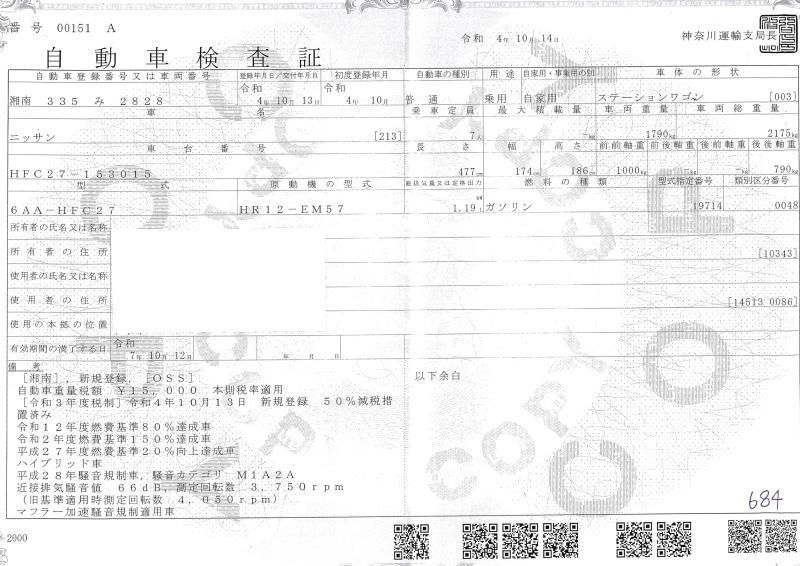 番号 00151 A
令和 4年10月14日 神奈川運輸支局長
自動車検査証
自動車登録番号又は車両番号 登録年月日／交付年月日 初度登録年月 自動車の種別 用途 自家用・事業用の別 車体の形状
令和 令和
湘南 335 み 2828 4年 10月 13日 4年 10月 普通 乗用 自家用 ステーションワゴン [003]
車名 乗車定員 最大積載量 車両重量 車両総重量
ニッサン [213] 7人 －kg 1790kg 2175kg
車台番号 長さ 幅 高さ 前前軸重 前後軸重 後前軸重 後後軸重
HFC27－153015 477cm 174cm 186cm 1000kg －kg －kg 790kg
型式 原動機の型式 総排気量又は定格出力 燃料の種類 型式指定番号 類別区分番号
6AA－HFC27 HR12－EM57 1.19 kW L ガソリン 19714 0048
所有者の氏名又は名称
所有者の住所 [10343]
使用者の氏名又は名称
使用者の住所 [14513 0086]
使用の本拠の位置
有効期間の満了する日 令和 7年 10月 12日 年 月 日
備考
[湘南]，新規登録，[OSS] 以下余白
自動車重量税額 ￥15，000 本則税率適用
[令和3年度税制] 令和4年10月13日 新規登録 50％減税措
置済み
令和12年度燃費基準80％達成車
令和2年度燃費基準150％達成車
平成27年度燃費基準20％向上達成車
ハイブリッド車
平成28年騒音規制車，騒音カテゴリ M1A2A
近接排気騒音値 66dB，測定回転数 3，750rpm
（旧基準適用時測定回転数 4，050rpm）
マフラー加速騒音規制適用車
684
2000
COPY
COPY